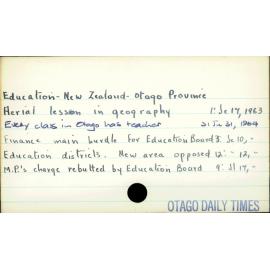 Education - New Zealand - Otago Province
Aerial lesson in geography 1: Je 17, 1963
Every class in Otago has teacher 21 Ja 31, 1964
Finance main hurdle for Education Board 3: Je 10, -
Education districts. New area opposed 12: - 12, -
M.P.'s charge rebutted by Education Board 9: Jl 17, -
OTAGO DAILY TIMES